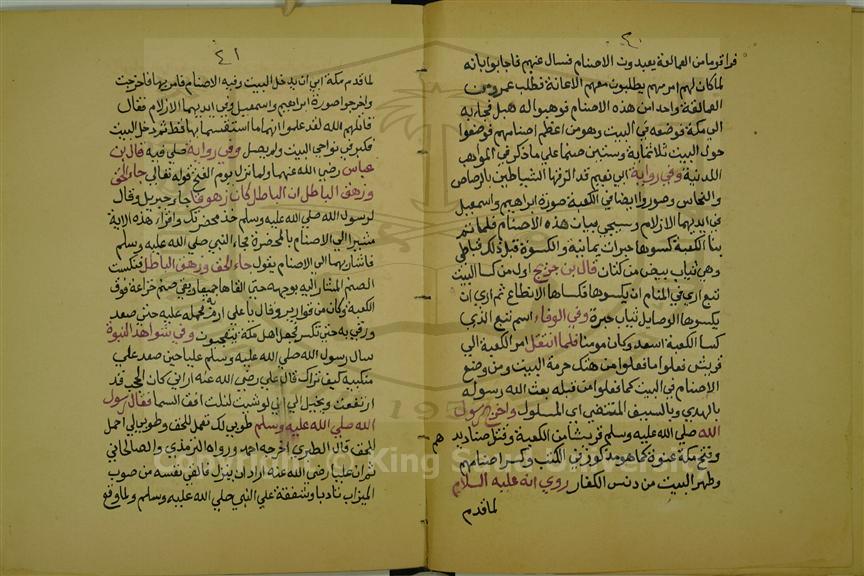 ٤٠
فرا قوما من العمالقة يعبدون الاصنام فسال عنهم فاجابوا بانه
لما كان لهم امر مهم يطلبون معهم الاعانة فطلب عمرو من
العمالقة واحدا من هذه الاصنام فوهبوا له هبل فجا به
الى مكة فوضعه في البيت وهو من اعظم اصنامهم فوضعوا
حول البيت ثلاثماية وستين صنما على ما ذكر في المواهب
اللدنية وفي رواية ابي نعيم قد الزقها الشياطين بالرصاص
والنحاس وصوروا ايضا في الكعبة صورة ابراهيم واسمعيل
في ايديهما الازلام وسيجي بيان هذه الاصنام فلما تم
بنا الكعبة كسوها حبرات يمانية والكسوة قبل ذلك قباطي
وهي ثياب بيض من كتان قال بن جريج اول من كسا البيت
تبع اري في المنام ان يكسوها فكساها الانطاع ثم اري ان
يكسوها الوصايل ثياب حبرة وفي الوفاء اسم تبع الذي
كسا الكعبة اسعد وكان مومنا فلما انتقل امر الكعبة الى
قريش فعلوا ما فعلوا من هتك حرمة البيت ومن وضع
الاصنام في البيت كما فعلوا من قبله بعث الله رسوله
بالهدي وبالسيف المنتضى اى المسلول واخرج رسول
الله صلى الله عليه وسلم قريشا من الكعبة وقتل صناديد هم
وفتح مكة عنوة كما هو مذكور في الكتب وكسر اصنامهم
وطهر البيت من دنس الكفار روي انه عليه السلام
لما قدم
٤١
لما قدم مكة ابى ان يدخل البيت وفيه الاصنام فامر بها فاخرجت
واخرجوا صورة ابراهيم واسمعيل وفي ايديهما الازلام فقال
قاتلهم الله لقد علموا انهما ما استقسما بها قط ثم دخل البيت
فكبر في نواحي البيت ولم يصل وفي رواية صلى فيه قال بن
عباس رضى الله عنهما ولما نزل يوم الفتح قوله تعالى جاء الحق
وزهق الباطل ان الباطل كان زهوقا جاء جبريل وقال
لرسول الله صلى الله عليه وسلم خذ محضرتك واقراء هذه الاية
مشيرا الى الاصنام بالمحضرة فجاء النبي صلى الله عليه وسلم
فاشار بها الى الاصنام يقول جاء الحق وزهق الباطل فينكست
الصنم المشار اليه بوجهه حتى القاها جميعا وبقي صنم خزاعة فوق
الكعبة وكان من قوارير وقال يا على ارم به فحمله عليه حتى صعد
ورقى به حتى تكسر فجعل اهل مكة يتعجبون وفي شواهد النبوة
سال رسول الله صلى الله عليه وسلم عليا حين صعد على
منكبيه كيف تراك قال على رضى الله عنه اراني كان الحجب قد
ارتفعت ويخيل الى اني لو شيت لنلت افق السما فقال رسول
الله صلى الله عليه وسلم طوبى لك تعمل للحق وطوبى لي احمل
للحق قال الطبري اخرجه احمد ورواه الترمذي والصالحاني
ثم ان عليا رضى الله عنه اراد ان ينزل فالقى نفسه من صوب
الميزاب تادبا وشفقة على النبي صلى الله عليه وسلم ولما وقع
Copyright © King Saud University
1957